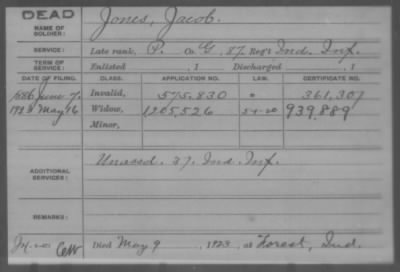 DEAD
NAME OF SOLDIER: Jones, Jacob.
SERVICE: Late rank, P. Co. G, 87 Reg't Ind. Inf.
TERM OF SERVICE: Enlisted , 1 Discharged , 1
DATE OF FILING. CLASS. APPLICATION NO. LAW. CERTIFICATE NO.
1886 June 7. Invalid, 575.830 361,307
1923 May 16 Widow, 1205,526 5-1-20 939,889
Minor,
ADDITIONAL SERVICES: Unassd. 37. Ind. Inf.
REMARKS:
Died May 9, 1923, at Forest, Ind.